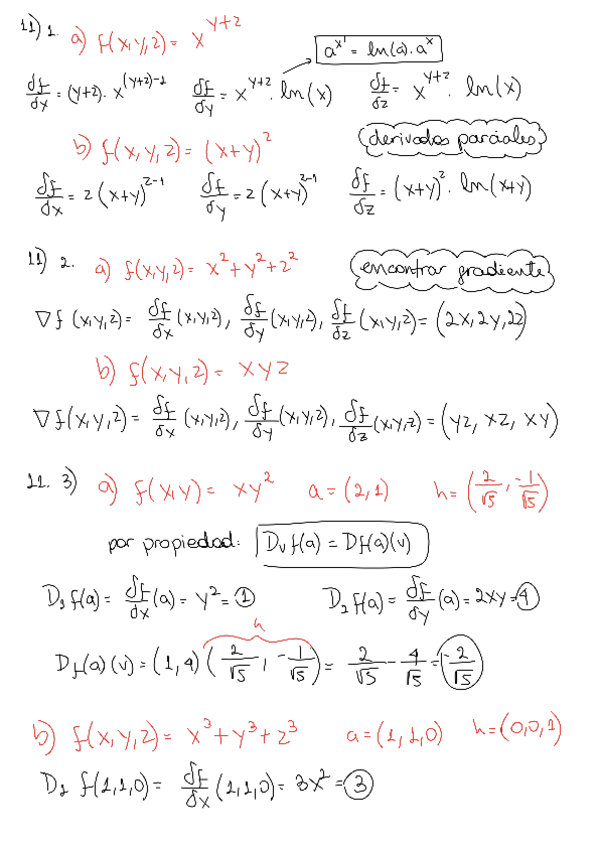 11) 1. a) f(x,y,z) = x^(y+z)
a^x' = ln(a).a^x
δf/δx = (y+z). x^((y+z)-1) δf/δy = x^(y+z). ln(x) δf/δz = x^(y+z). ln(x)
b) f(x,y,z) = (x+y)^z
derivadas parciales
δf/δx = z (x+y)^(z-1) δf/δy = z (x+y)^(z-1) δf/δz = (x+y)^z. ln(x+y)
11) 2. a) f(x,y,z) = x² + y² + z²
encontrar gradiente
∇f (x,y,z) = δf/δx (x,y,z), δf/δy (x,y,z), δf/δz (x,y,z) = (2x, 2y, 2z)
b) f(x,y,z) = xyz
∇f(x,y,z) = δf/δx (x,y,z), δf/δy (x,y,z), δf/δz (x,y,z) = (yz, xz, xy)
11. 3) a) f(x,y) = xy² a = (2,1) h = (2/√5, -1/√5)
por propiedad: Dvf(a) = Df(a)(v)
D₁f(a) = δf/δx (a) = y² = 1 D₂f(a) = δf/δy (a) = 2xy = 4
h
Df(a)(v) = (1,4) (2/√5, -1/√5) = 2/√5 - 4/√5 = -2/√5
b) f(x,y,z) = x³ + y³ + z³ a = (1,1,0) h = (0,0,1)
D₁ f(1,1,0) = δf/δx (1,1,0) = 3x² = 3